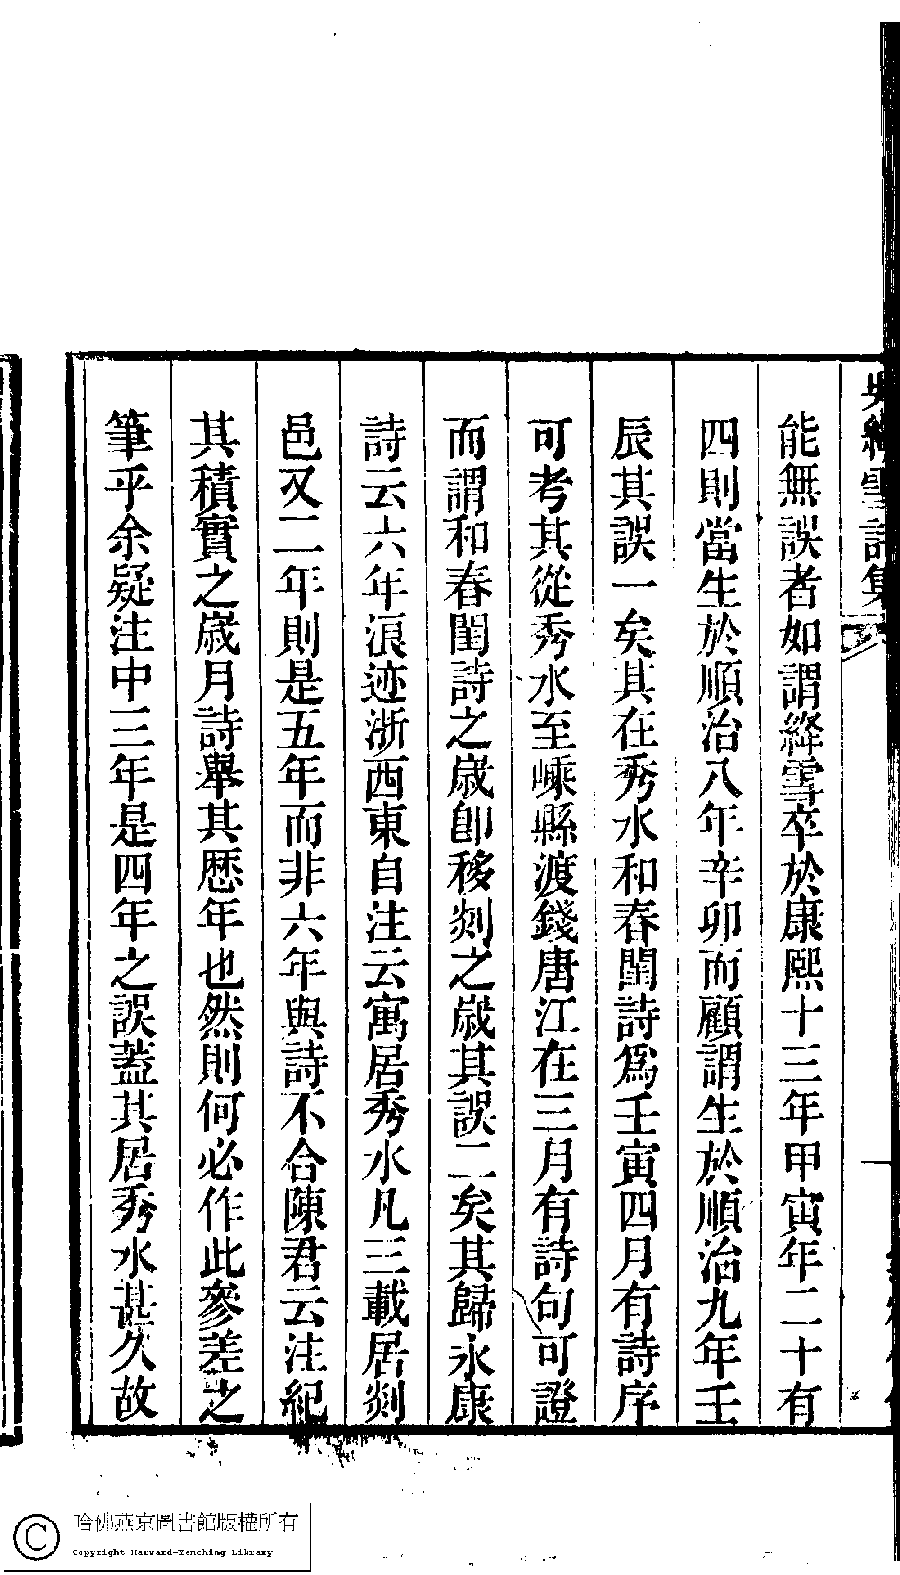 吳絳雪詩集
能無誤者如謂絳雪卒於康熙十三年甲寅年二十有
四則當生於順治八年辛卯而顧謂生於順治九年壬
辰其誤一矣其在秀水和春閨詩爲壬寅四月有詩序
可考其從秀水至嵊縣渡錢唐江在三月有詩句可證
而謂和春閨詩之歲卽移剡之歲其誤二矣其歸永康
詩云六年浪迹浙西東自注云寓居秀水凡三載居剡
邑又二年則是五年而非六年與詩不合陳君云注紀
其積實之歲月詩舉其歷年也然則何必作此參差之
筆乎余疑注中三年是四年之誤蓋其居秀水甚久故
哈佛燕京圖書館版權所有
Copyright Harvard-Yenching Library